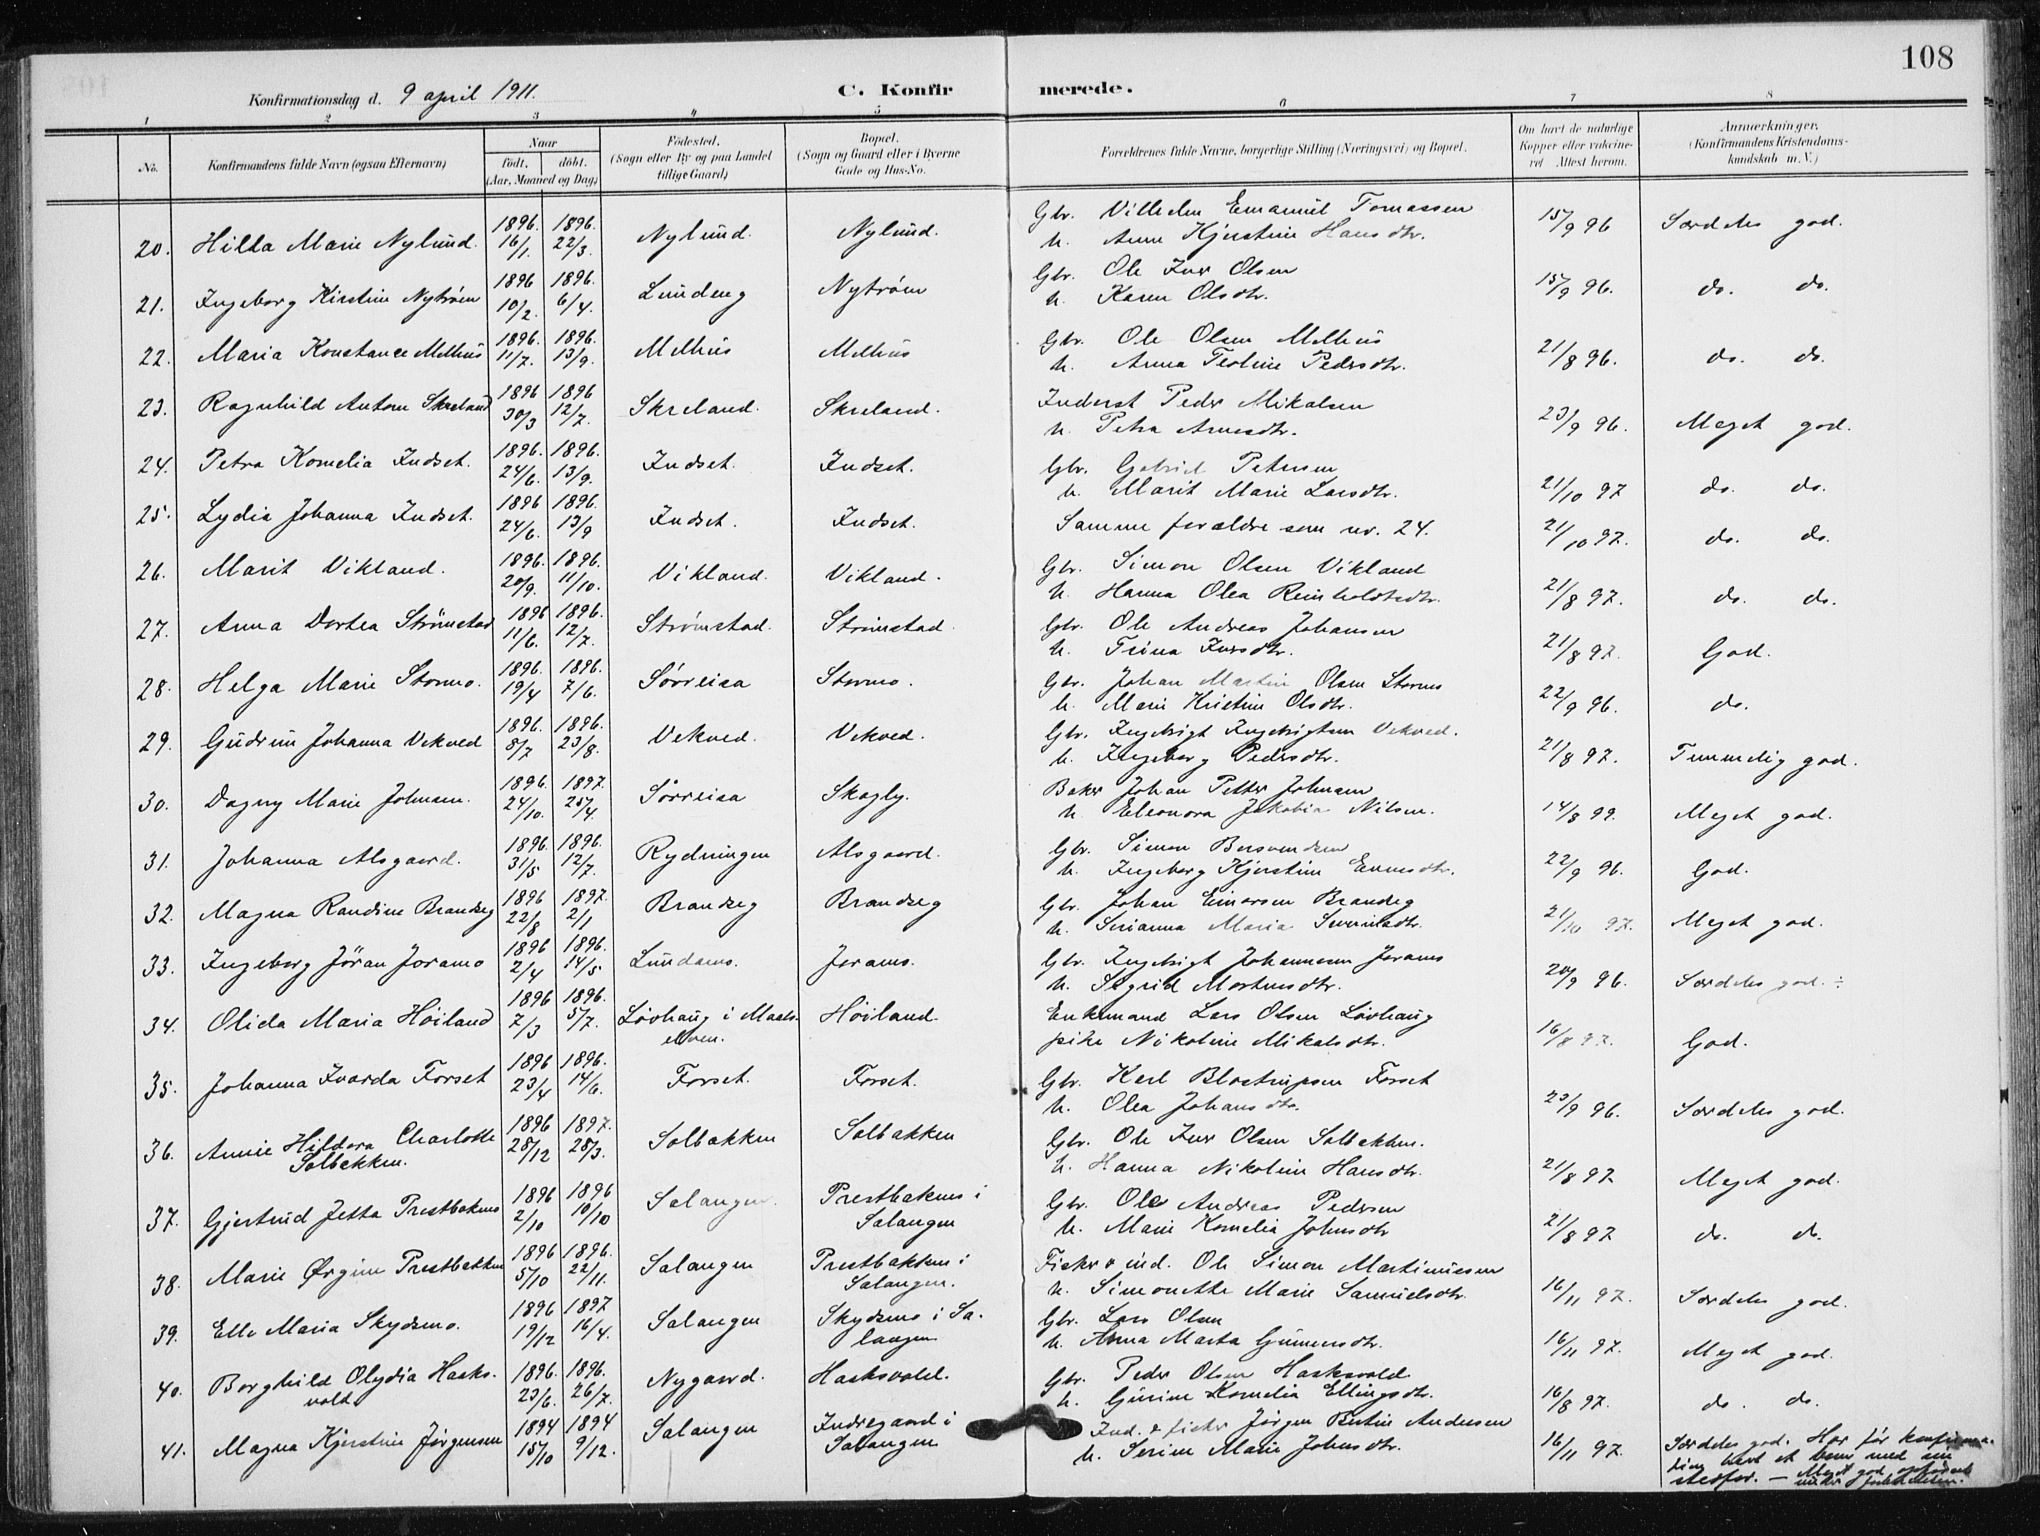 108
Konfirmationsdag d. 9 april 1911.
C. Konfirmerede.
1 2 3 4 5 6 7 8
No. Konfirmandens fulde Navn (ogsaa Efternavn) Naar født, døbt. (Aar, Maaned og Dag) Fødested. (Sogn eller By og paa Landet tillige Gaard) Bopæl. (Sogn og Gaard eller i Byerne Gade og Hus-No. Forældrenes fulde Navne, borgerlige Stilling (Næringsvei) og Bopæl. Om havt de naturlige Kopper eller vaccineret Attest herom. Anmærkninger. (Konfirmandens Kristendomskundskab m. V.)
20. Hilda Marie Nylund. 1896. 16/1. 1896. 22/3. Nylund. Nylund. Gbr. Vilhelm Emanuel Tomassen
h. Anne Kjerstine Hansdtr. 15/9 96 Særdeles god.
21. Ingeborg Kirstine Nytrøm 1896 10/2. 1896. 6/4. Lundeng Nytrøm Gbr. Ole Iver Olsen
h. Karen Olsdtr. 15/9 96. do. do.
22. Maria Konstance Melhus 1896. 11/7. 1896. 13/9. Melhus Melhus Gbr. Ole Olsen Melhus
h. Anna Teoline Pedersdtr. 21/8 96. do. do.
23. Ragnhild Antone Skreland 1896 30/3 1896 12/7. Skreland. Skreland. Inderst Peder Mikalsen
h. Petra Arnesdtr. 23/9 96. Meget god.
24. Petra Kornelia Indset. 1896. 24/6. 1896. 13/9. Indset. Indset. Gbr. Gabriel Petersen
h. Marit Marie Larsdtr. 21/10 97 do. do.
25. Lydia Johanna Indset. 1896 24/6. 1896. 13/9 Indset. Indset. Samme forældre som nr. 24. 21/10 97. do. do.
26. Marit Vikland. 1896. 20/9. 1896. 11/10. Vikland. Vikland. Gbr. Simon Olsen Vikland
h. Hanna Olea Reinholdtsdtr. 21/8 97. do. do.
27. Anna Dortea Strømstad 1896 11/6. 1896. 12/7. Strømstad. Strømstad. Gbr. Ole Andreas Johansen
h. Trina Iversdtr. 21/8 97. God.
28. Helga Marie Stormo. 1896. 19/4 1896. 7/6. Sørreisa Stormo. Gbr. Johan Martin Olsen Stormo
h. Marie Kristine Olsdtr. 22/9 96. do.
29. Gudrun Johanna Vekved 1896. 8/7 1896. 23/8. Vekved. Vekved. Gbr. Ingebrigt Ingebrigtsen Vekved.
h. Ingeborg Pedersdtr. 21/8 97. Temmelig god.
30. Dagny Marie Johnsen. 1896. 24/10. 1897. 25/4. Sørreisa Skogly. Baker Johan Petter Johnsen
h. Eleonora Jakobia Nilsen. 14/8 99. Meget god.
31. Johanna Alsgaard. 1896. 31/5 1896. 12/7. Rydningen Alsgaard. Gbr. Simon Bersvendsen
h. Ingeborg Kjerstine Evensdtr. 22/9 96. God.
32. Magna Randine Brandseg 1896 22/8 1897. 2/1 Brandseg Brandseg Gbr. Johan Einarsen Brandeg
h. Serianna Maria Severinsdtr. 21/10 97. Meget god.
33. Ingeborg Jøran Joramo 1896 2/4 1896. 14/5 Lundamo. Joramo. Gbr. Ingebrigt Johannesen Joramo
h. Sigrid Mortensdtr. 20/9 96. Særdeles god. ÷
34. Olida Maria Høiland 1896 7/3 1896. 5/7. Løvhaug i Maals-
elven. Høiland Enkemand Lars Olsen Løvhaug
pike Nikoline Mikalsdtr. 16/8 97. God.
35. Johanna Ivarda Forset 1896 23/4 1896. 14/6. Forset. Forset. Gbr. Karl Blostrupsen Forset
h. Olea Johansdtr. 23/9 96. Særdeles god.
36. Annie Hildora Charlotte
Solbakken. 1896 28/12 1897. 28/3. Solbakken Solbakken Gbr. Ole Iver Olsen Solbakken.
h. Hanna Nikoline Hansdtr. 21/8 97 Meget god.
37. Gjertrud Jetta Prestbakmo 1896 2/10 1896 10/10 Salangen. Prestbakmo i
Salangen Gbr. Ole Andreas Pedersen
h. Marie Kornelia Johnsdtr 21/8 97 do. do.
38. Marie Ørgine Prestbakken 1896 5/10 1896. 22/11. Salangen Prestbakken i
Salangen. Fisker o ind. Ole Simon Martinussen
h. Simonette Marie Samuelsdtr. 16/11 97. Særdeles god.
39. Elle Maria Skydsmo. 1896 19/12 1897 16/4. Salangen Skydsmo i Sa-
langen Gbr. Lars Olsen
h. Anna Marta Gunnersdtr. 16/11 97. Meget god.
40. Borghild Olydia Haaks-
volt 1896. 23/6. 1896. 26/7. Nygaard. Haaksvold. Gbr. Peder Olsen Haaksvold
h. Gurine Kornelia Ellingsdtr. 16/8 97. do. do.
41. Magna Kjerstine Jørgensen 1894 15/10 1894 9/12. Salangen Indregaard i
Salangen Ind. & fisker Jørgen Bertin Andersen
h. Serine Marie Johnsdtr. 16/11 97. Særdeles god. Har før konfirma-
tion havt et barn med sin
stedfar. — Meget god opførsel
under forberedelsen.